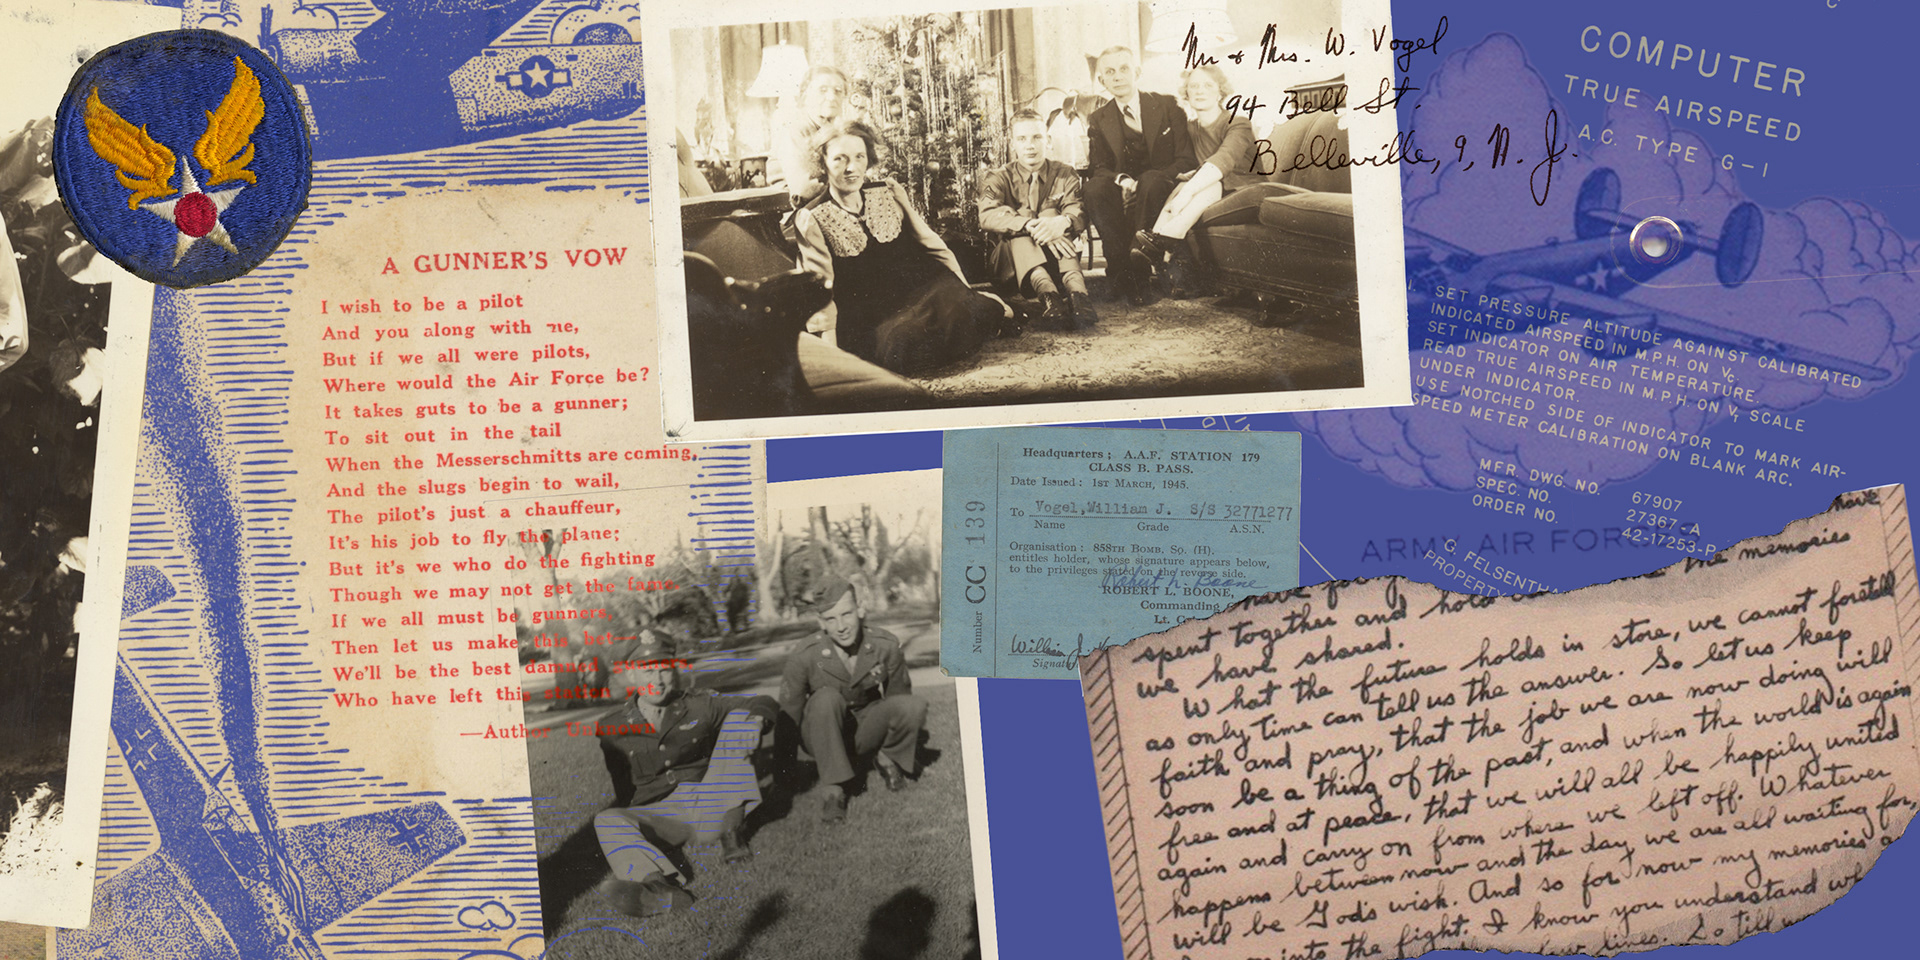 A GUNNER'S VOW
I wish to be a pilot
And you along with me,
But if we all were pilots,
Where would the Air Force be?
It takes guts to be a gunner;
To sit out in the tail
When the Messerschmitts are coming,
And the slugs begin to wail,
The pilot's just a chauffeur,
It's his job to fly the plane;
But it's we who do the fighting
Though we may not get the fame.
If we all must be gunners,
Then let us make this bet—
We'll be the best damned gunners
Who have left this station yet.
—Author Unknown
Mr & Mrs. W. Vogel
94 Bell St.
Belleville, 9, N. J.
COMPUTER
TRUE AIRSPEED
A.C. TYPE G-1
1. SET PRESSURE ALTITUDE AGAINST CALIBRATED
INDICATED AIRSPEED IN M.P.H. ON Vc.
SET INDICATOR ON AIR TEMPERATURE.
READ TRUE AIRSPEED IN M.P.H. ON Vt SCALE
UNDER INDICATOR.
USE NOTCHED SIDE OF INDICATOR TO MARK AIR-
SPEED METER CALIBRATION ON BLANK ARC.
MFR. DWG. NO. 67907
SPEC. NO. 27367-A
ORDER NO. 42-17253-P
ARMY AIR FORCES
G. FELSENTH
PROPERTY
Headquarters; A.A.F. STATION 179
CLASS B. PASS.
Date Issued: 1ST MARCH, 1945.
To Vogel, William J. S/S 32771277
Name Grade A.S.N.
Organisation: 858TH BOMB. SQ. (H).
entitles holder, whose signature appears below,
to the privileges stated on the reverse side.
Robert L. Boone
ROBERT L. BOONE,
Commanding
Lt.
William J.
Number CC 139
have
the memories
have
spent together and hold
we have shared.
What the future holds in store, we cannot foretell
as only time can tell us the answer. So let us keep
faith and pray, that the job we are now doing will
soon be a thing of the past, and when the world is again
free and at peace, that we will all be happily united
again and carry on from where we left off. Whatever
happens between now and the day we are all waiting for,
will be God's wish. And so for now my memories
into the fight. I know you understand
few lines. So till